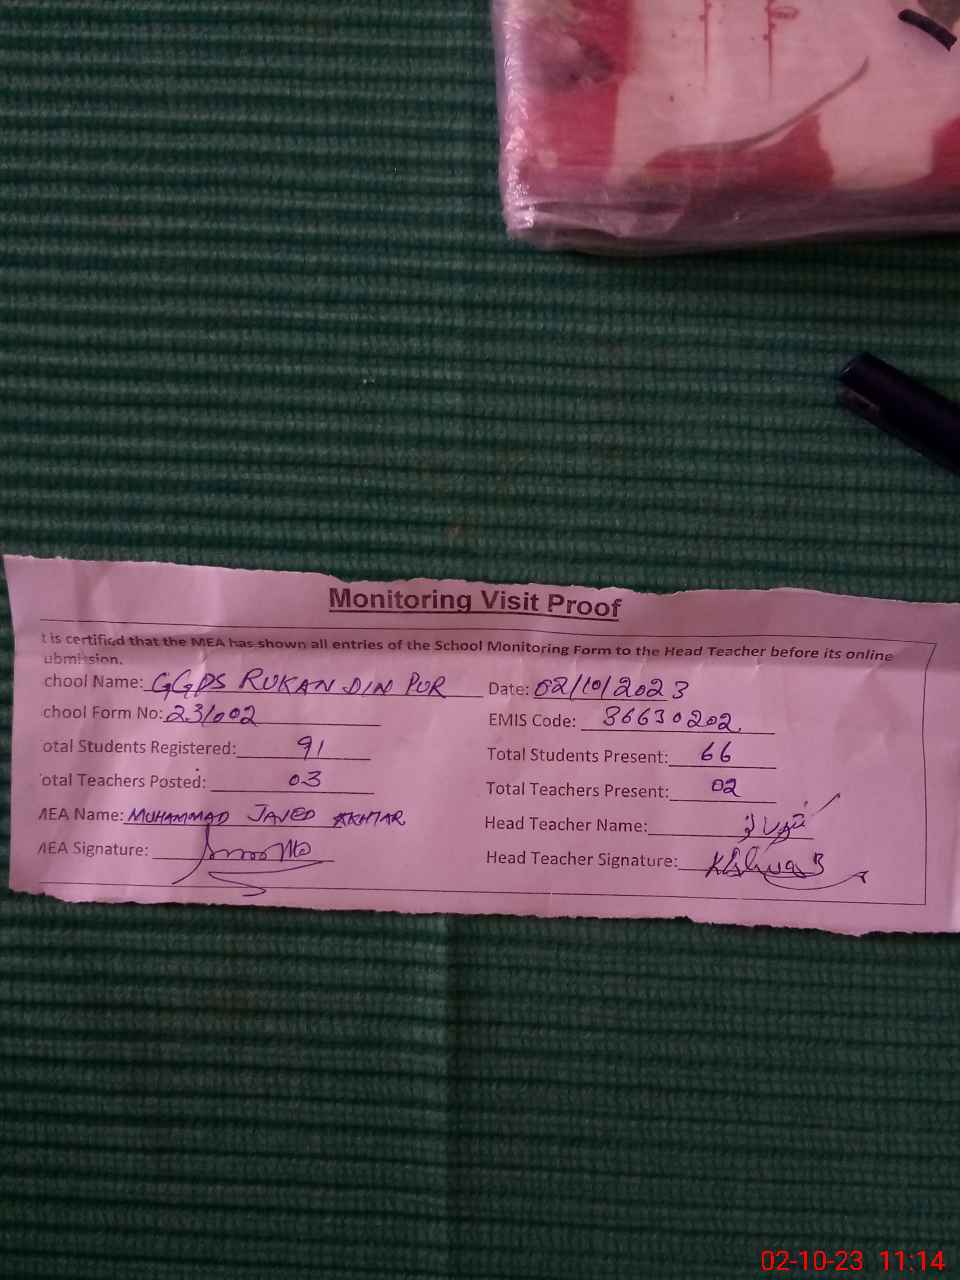 Monitoring Visit Proof
t is certified that the MEA has shown all entries of the School Monitoring Form to the Head Teacher before its online
ubmission.
chool Name: GGPS RUKAN DIN PUR Date: 02/10/2023
chool Form No: 23/002 EMIS Code: 36630202
otal Students Registered: 91 Total Students Present: 66
otal Teachers Posted: 03 Total Teachers Present: 02
MEA Name: MUHAMMAD JAVED AKHTAR Head Teacher Name:
MEA Signature: Head Teacher Signature:
02-10-23 11:14